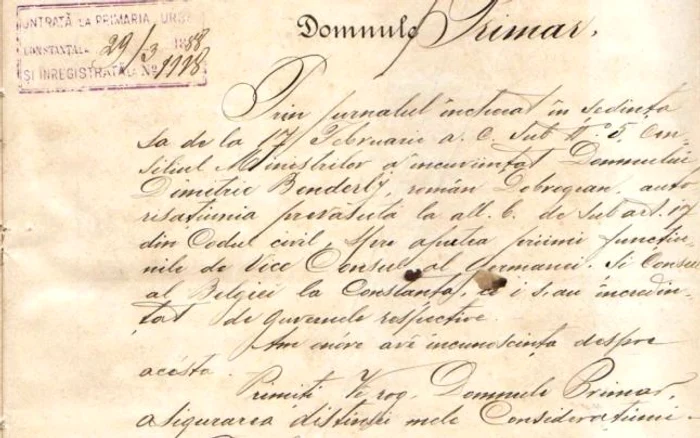 INTRATĂ LA PRIMĂRIA URBEI
CONSTANȚA LA 29/3 1888
ȘI ÎNREGISTRATĂ LA No 1118
Domnule Primar,
Prin jurnalul încheiat în ședința
sa de la 17 Februarie a. c. sub No 5. Con-
siliul Miniștrilor a încuviințat Domnului
Dimitrie Benderly, român Dobrogian, auto-
risațiunia prevăsută la alt. b. de sub art. 17
din Codul civil, spre a putea priimi funcțiu-
nile de Vice Consul al Germaniei. Si Consul
al Belgiei la Constanța, ce i s'au încredin-
țat de guvernele respective.
Am onóre a vĕ incunosciința despre
acésta.
Primiți Vĕ rog, Domnule Primar,
asigurarea distinsei mele Considerațiuni